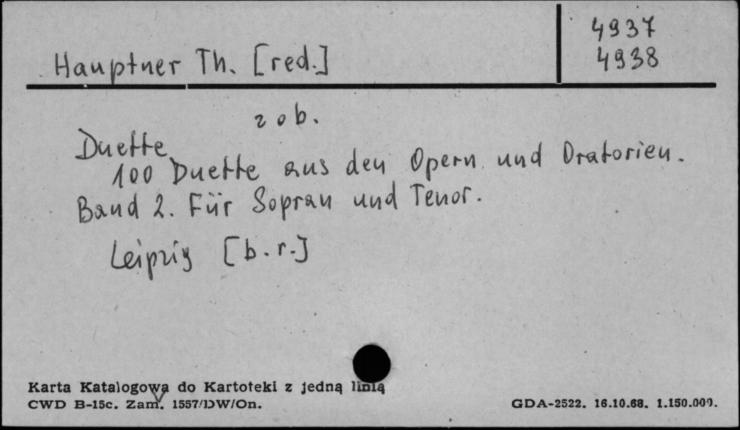 4937
4938
Hauptner Th. [red.]
zob.
Duette
100 Duette aus den Opern und Oratorien.
Band 2. Für Sopran und Tenor.
Leipzig [b.r.]
Karta Katalogowa do Kartoteki z jedną linią
CWD B-15c. Zam. 1557/DW/On.
GDA-2522. 16.10.68. 1.150.000.